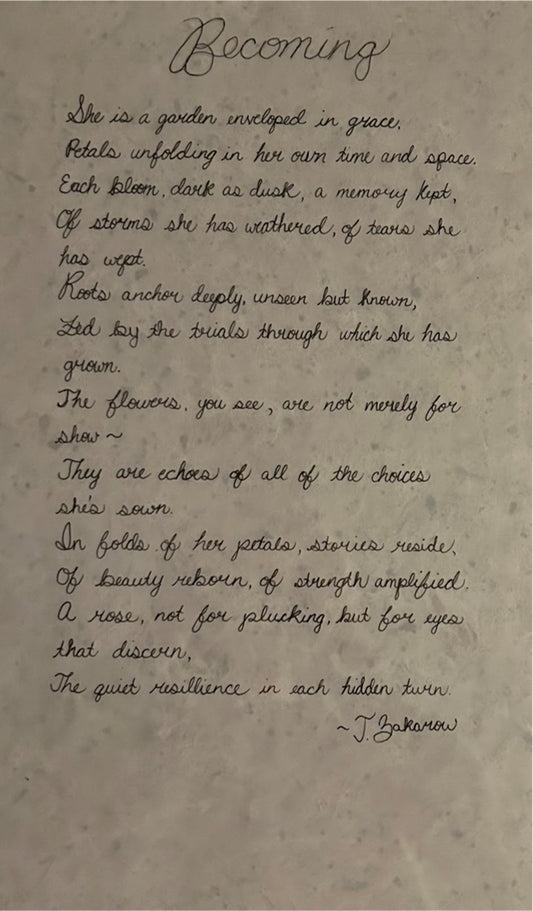 Becoming
She is a garden enveloped in grace,
Petals unfolding in her own time and space.
Each bloom, dark as dusk, a memory kept,
Of storms she has weathered, of tears she
has wept.
Roots anchor deeply, unseen but known,
Fed by the trials through which she has
grown.
The flowers, you see, are not merely for
show ~
They are echoes of all of the choices
she's sown.
In folds of her petals, stories reside,
Of beauty reborn, of strength amplified.
A rose, not for plucking, but for eyes
that discern,
The quiet resillience in each hidden turn.
~ J. Zakarow